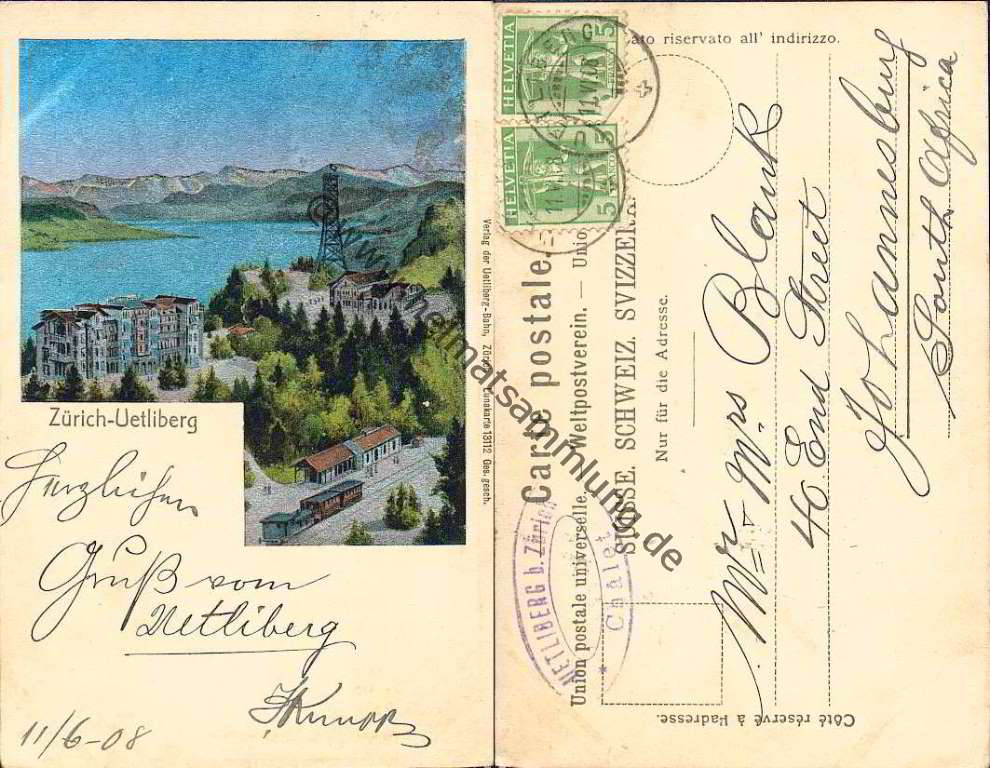 Zürich-Uetliberg
Herzlichen
Gruß vom
Uetliberg
11/6-08
Verlag der Uetliberg-Bahn, Lunakarte 13112 Ges. gesch.
HELVETIA
5
HELVETIA
5
11.VI.08
riservato all' indirizzo.
Carte postale.
Union postale universelle. Weltpostverein. —
SUISSE. SCHWEIZ. SVIZZERA.
Nur für die Adresse.
Côté réservé à l'adresse.
UETLIBERG b. Zürich
Chalet
Mr & Mrs Blank
40 End Street
Johannesburg
South Africa
heimatsammlung.de